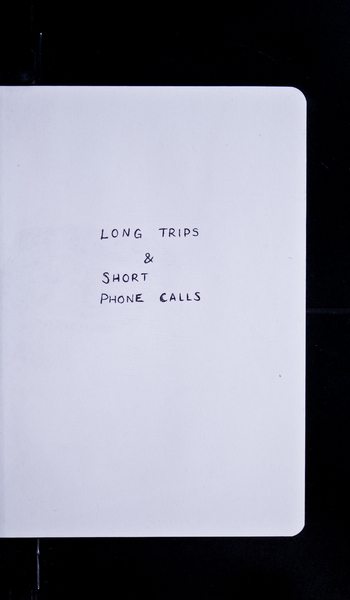 LONG TRIPS
&
SHORT
PHONE CALLS